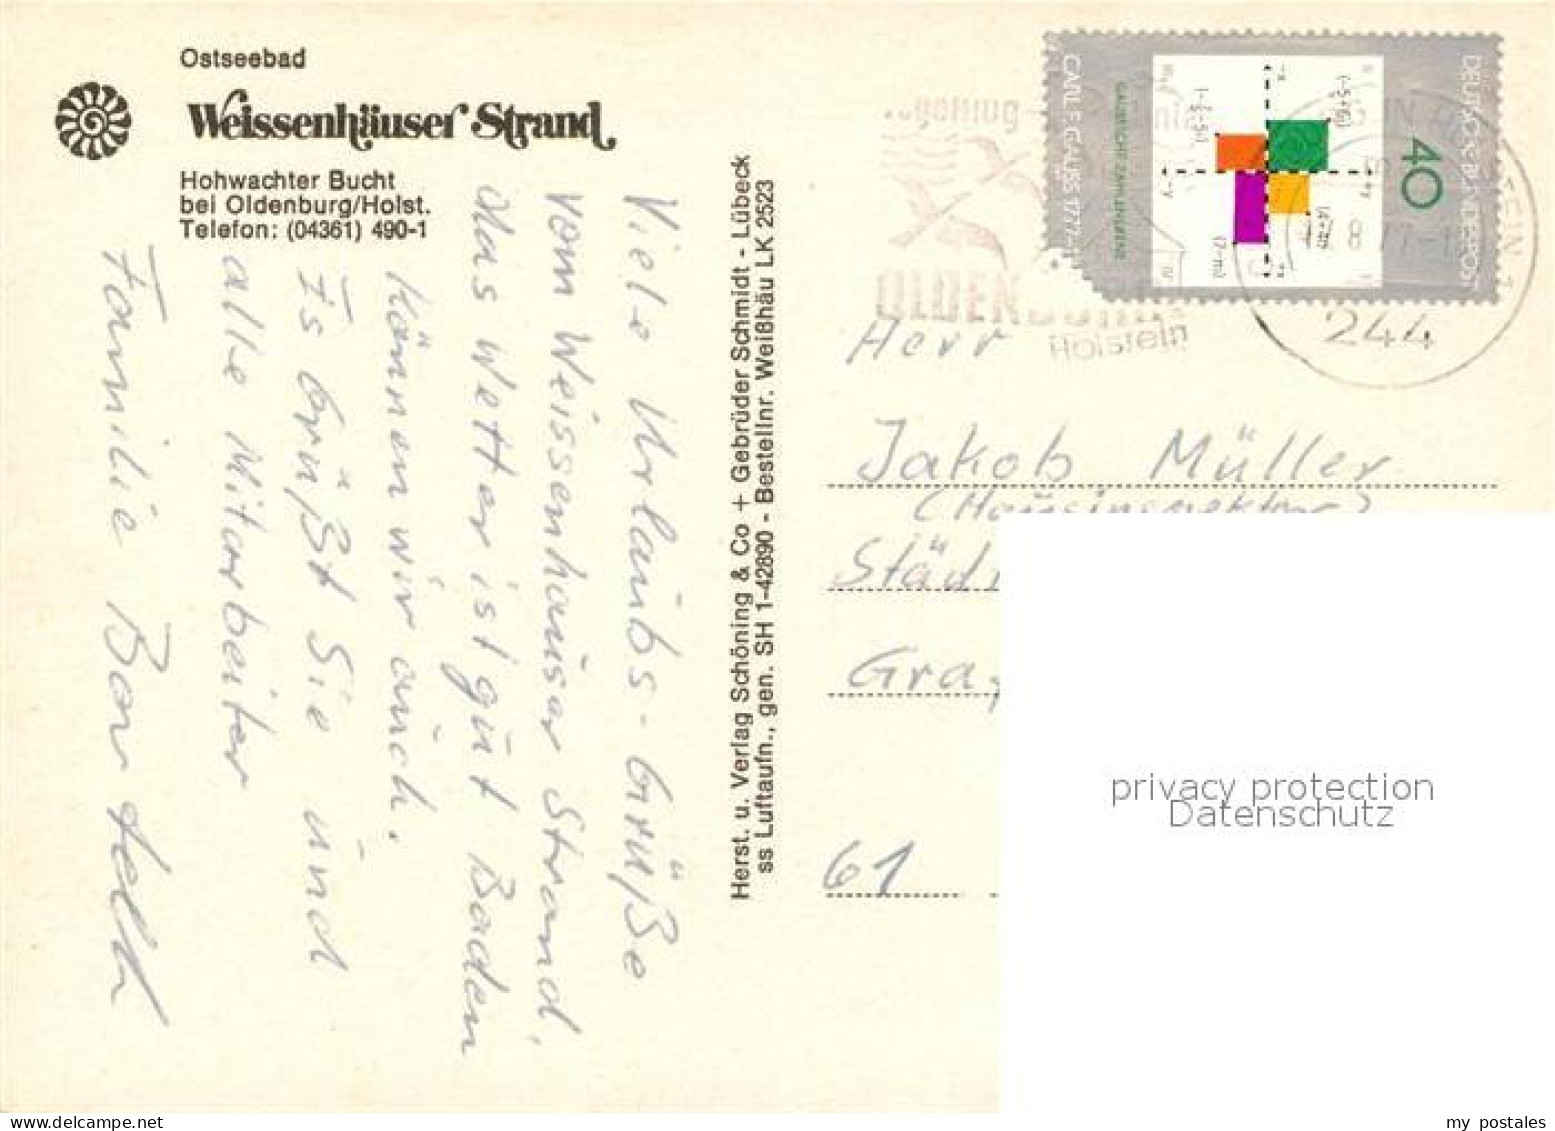 Ostseebad
Weissenhäuser Strand
Hohwachter Bucht
bei Oldenburg/Holst.
Telefon: (04361) 490-1
Viele Urlaubs-Grüße
vom Weissenhauser Strand,
das Wetter ist gut Baden
können wir auch.
Es Grüßt Sie und
alle Mitarbeiter
Familie
Herst. u. Verlag Schöning & Co + Gebrüder Schmidt - Lübeck
ss Luftaufn., gen. SH 1-42890 - Bestellnr. Weißhäu LK 2523
DEUTSCHE BUNDESPOST
40
CARL F. GAUSS 1777-
GAUSSSCHE ZAHLENEBENE
OLDENBURG
Holstein
244
Herr
Jakob Müller
(Hausinspektor)
61
privacy protection
Datenschutz
my postales